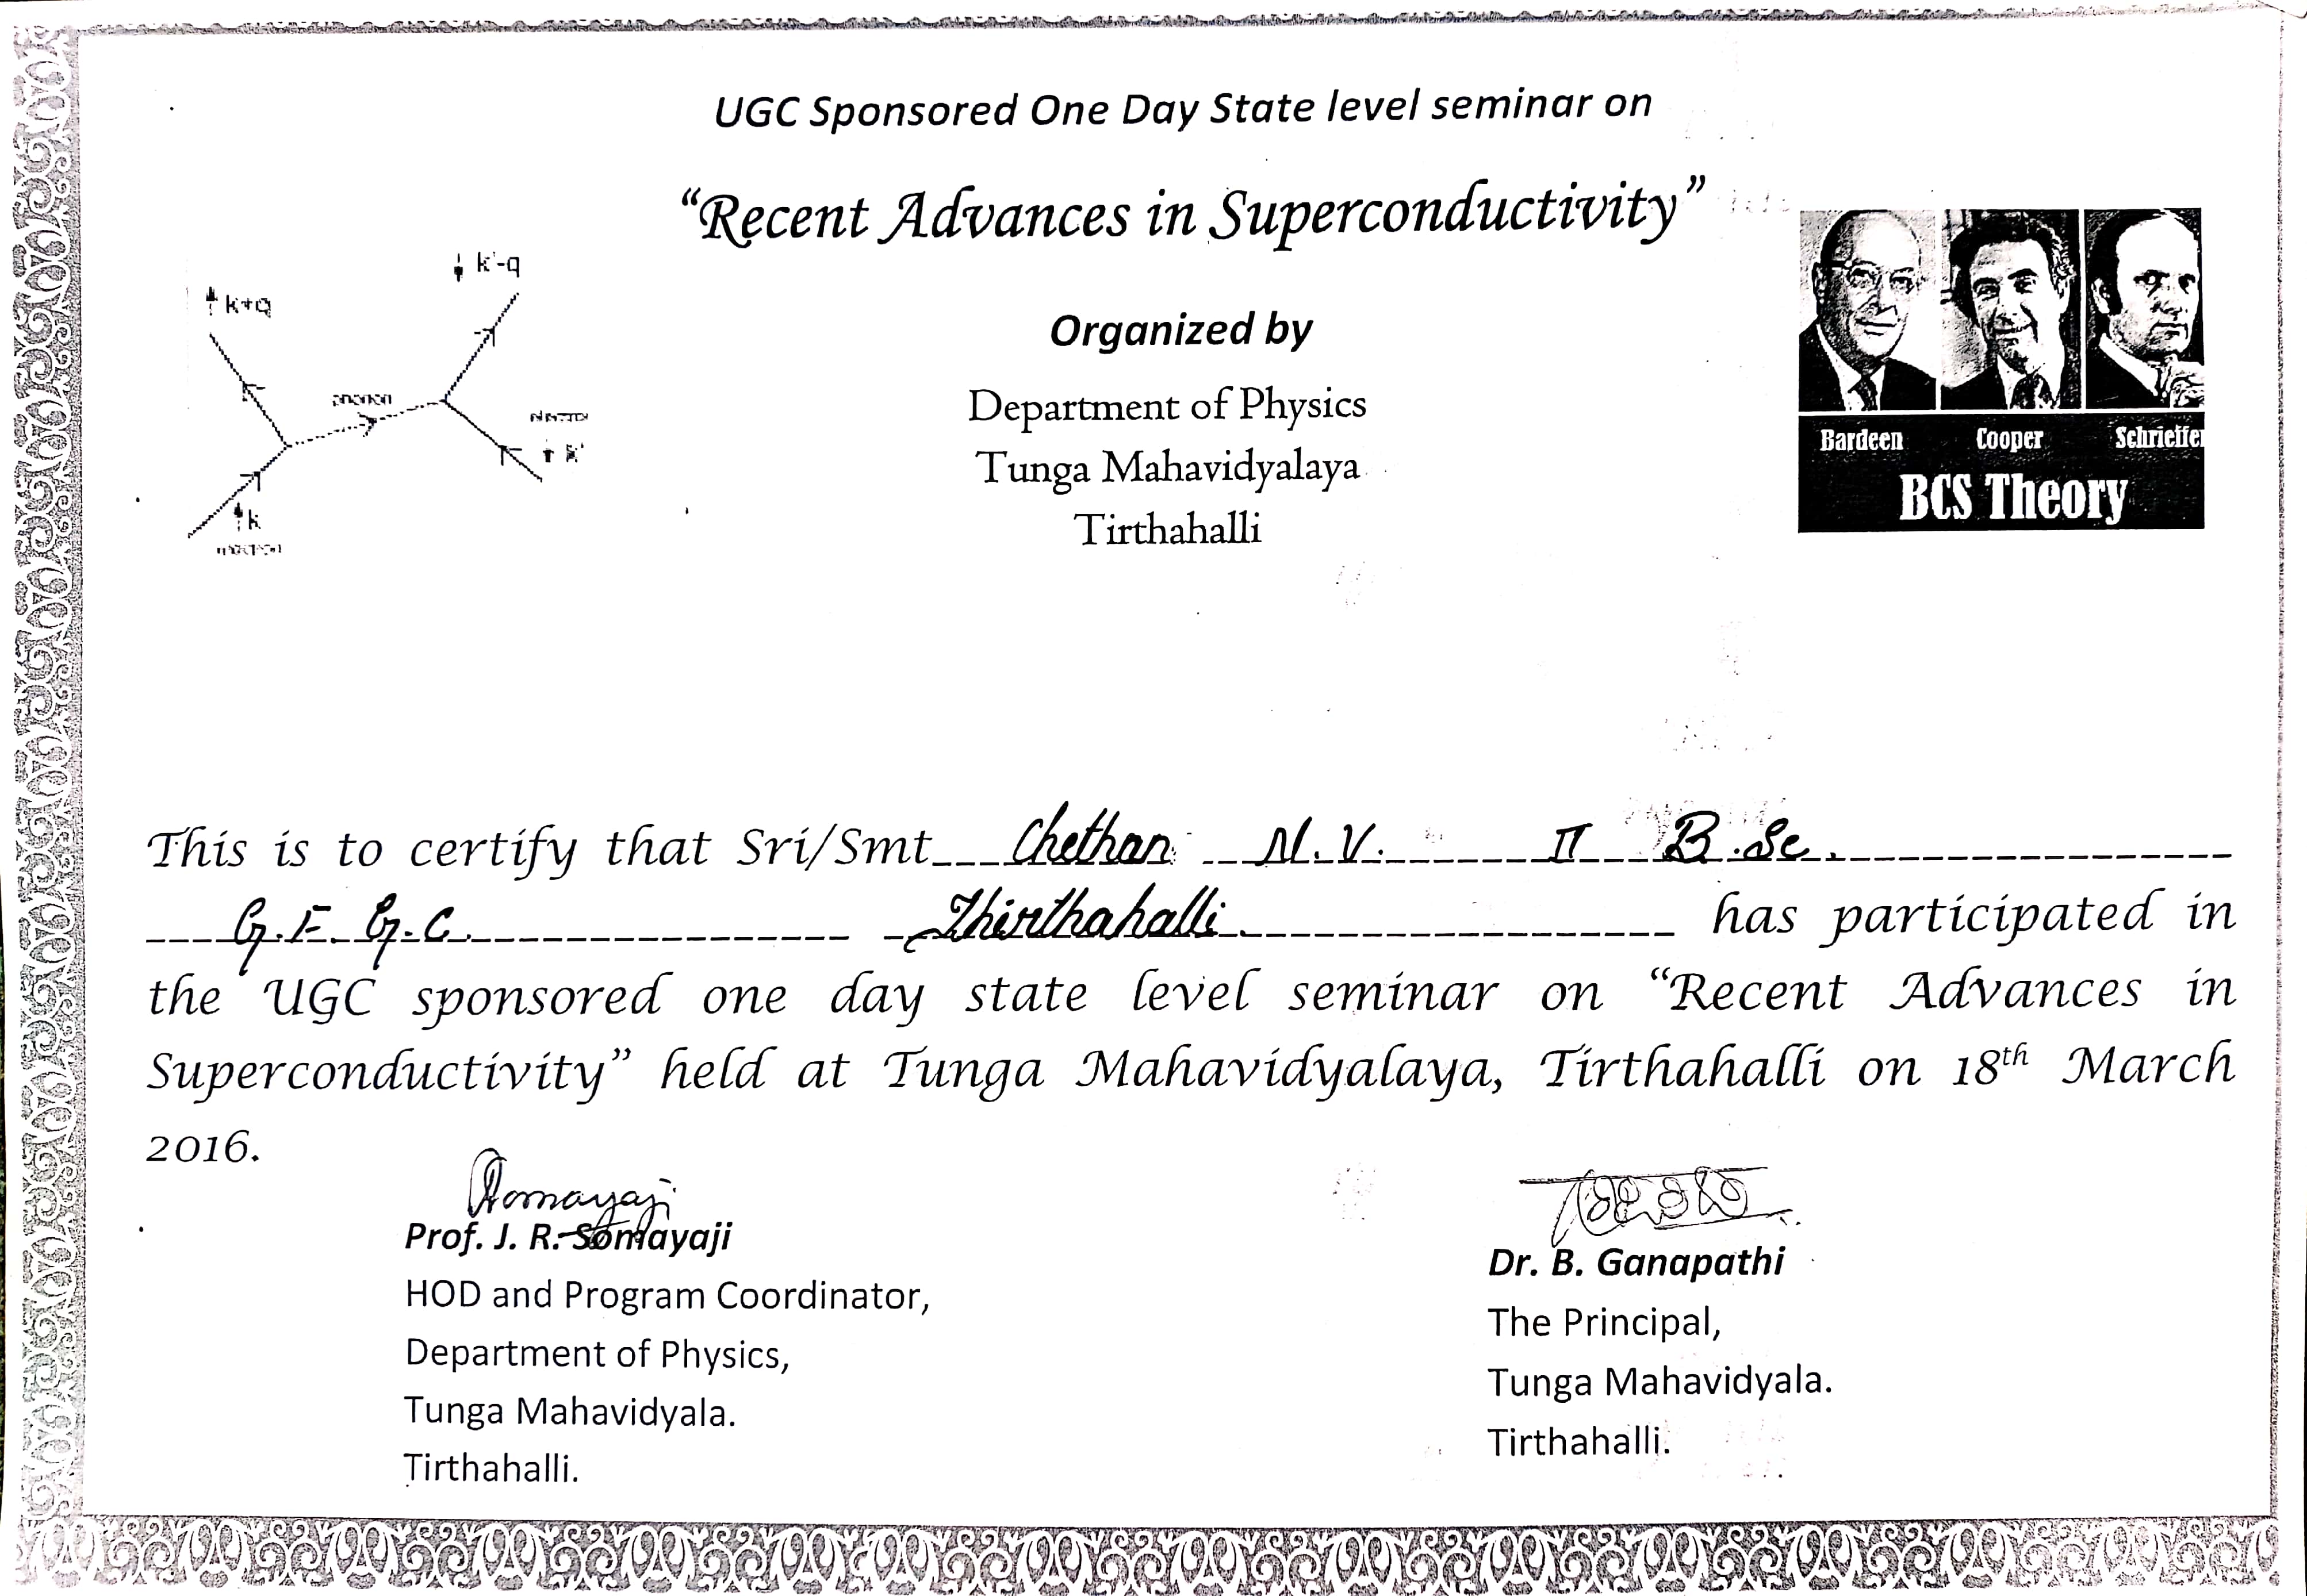 UGC Sponsored One Day State level seminar on
“Recent Advances in Superconductivity”
Organized by
Department of Physics
Tunga Mahavidyalaya
Tirthahalli
k+q
k'-q
phonon
k'
k
Bardeen Cooper Schrieffer
BCS Theory
This is to certify that Sri/Smt Chethan N.V. II B.Sc.
G.F.G.C. Thirthahalli. has participated in
the UGC sponsored one day state level seminar on “Recent Advances in
Superconductivity” held at Tunga Mahavidyalaya, Tirthahalli on 18th March
2016.
Somayaji
Prof. J. R. Somayaji
HOD and Program Coordinator,
Department of Physics,
Tunga Mahavidyala.
Tirthahalli.
Dr. B. Ganapathi
The Principal,
Tunga Mahavidyala.
Tirthahalli.